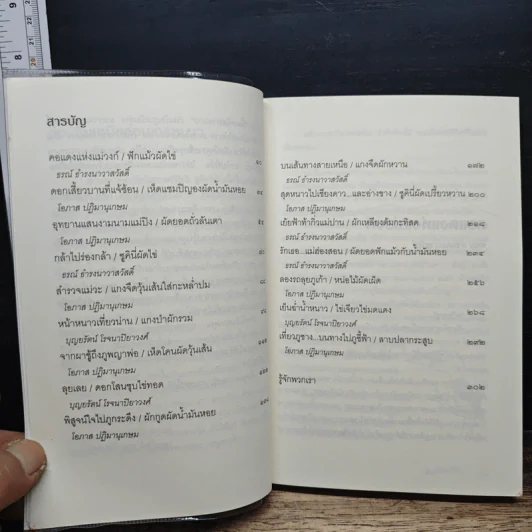 สารบัญ
คอแดงแห่งแม่วงก์ / ฟักแม้วผัดไข่
ธรณ์ ธำรงนาวาสวัสดิ์
ดอกเสี้ยวบานที่แจ้ซ้อน / เห็ดแชมปิญองผัดน้ำมันหอย
โอภาส ปฏิมานุเกษม
อุทยานแสนงามนามแม่ปิง / ผัดยอดถั่วลันเตา
โอภาส ปฏิมานุเกษม
กล้าไปร่องกล้า / ซูคินี่ผัดไข่
ธรณ์ ธำรงนาวาสวัสดิ์
สำรวจแม่วะ / แกงจืดวุ้นเส้นใส่กะหล่ำปม
โอภาส ปฏิมานุเกษม
หน้าหนาวเที่ยวน่าน / แกงป่าผักรวม
บุญยรัตน์ โรจนาปิยาวงศ์
จากผาชู้ถึงภูพญาพ่อ / เห็ดโคนผัดวุ้นเส้น
โอภาส ปฏิมานุเกษม
ลุยเลย / ดอกโสนชุบไข่ทอด
บุญยรัตน์ โรจนาปิยาวงศ์
พิสูจน์ใจไปภูกระดึง / ผักกูดผัดน้ำมันหอย
โอภาส ปฏิมานุเกษม
บนเส้นทางสายเหนือ / แกงจืดผักหวาน ๑๗๒
ธรณ์ ธำรงนาวาสวัสดิ์
สุดหนาวไปเชียงดาว...และอ่างขาง / ซูคินี่ผัดเปรี้ยวหวาน ๒๐๐
โอภาส ปฏิมานุเกษม
เย้ยฟ้าท้ากิ่วแม่ปาน / ผักเหลียงต้มกะทิสด ๒๑๘
ธรณ์ ธำรงนาวาสวัสดิ์
รักเธอ...แม่ฮ่องสอน / ผัดยอดฟักแม้วกับน้ำมันหอย ๒๓๔
ธรณ์ ธำรงนาวาสวัสดิ์
ลองรถลุยภูเก้า / หน่อไม้ผัดเผ็ด ๒๕๖
โอภาส ปฏิมานุเกษม
เย็นฉ่ำน้ำหนาว / ไข่เจียวไข่มดแดง ๒๖๘
บุญยรัตน์ โรจนาปิยาวงศ์
เที่ยวภูซาง...บนทางไปภูชี้ฟ้า / ลาบปลากระสูบ ๒๙๒
โอภาส ปฏิมานุเกษม
รู้จักพวกเรา ๓๐๒